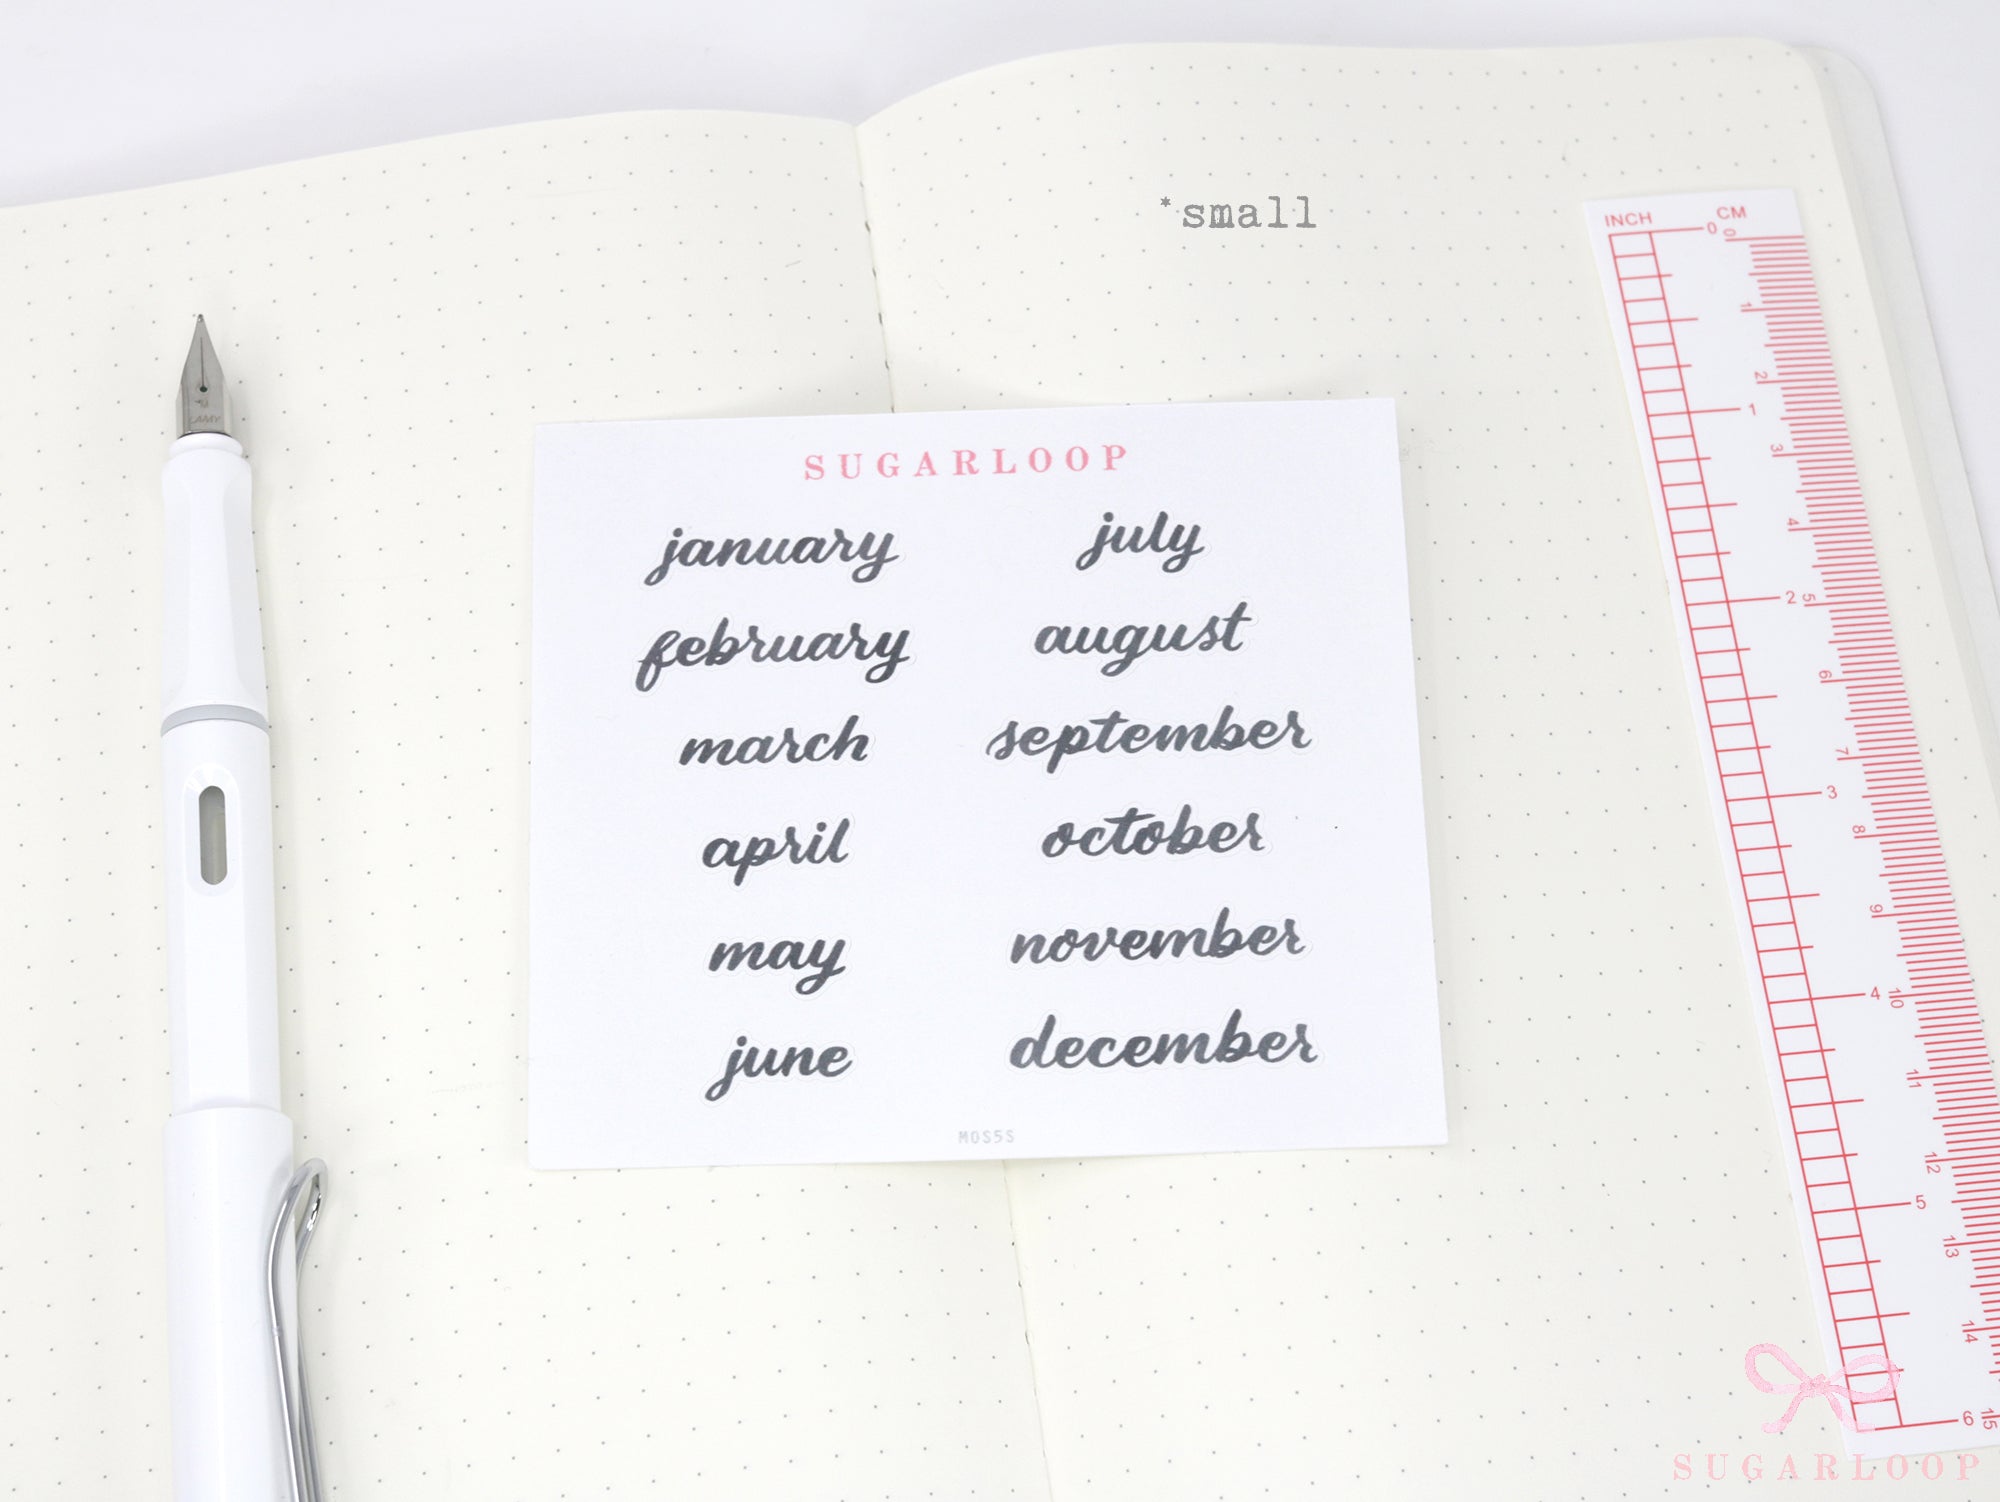 *small
INCH CM
0 0
1
2
1
3
4
2 5
6
7
3
8
9
4 10
11
12
5
13
14
6 15
LAMY
SUGARLOOP
january
february
march
april
may
june
july
august
september
october
november
december
MOS5S
SUGARLOOP